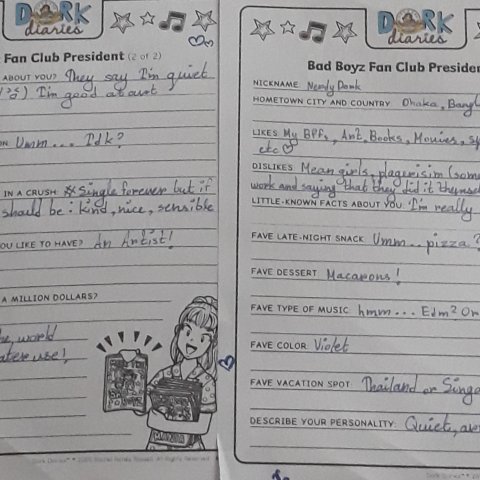 DORK
diaries
Fan Club President (2 of 2)
ABOUT YOU? They say I'm quiet
I'm good at art
Umm... Idk?
IN A CRUSH: Single forever but if
should be: kind, nice, sensible
OU LIKE TO HAVE? An Artist!
A MILLION DOLLARS?
world
use!
DORK
diaries
Bad Boyz Fan Club Presiden
NICKNAME: Nerdy Donk
HOMETOWN CITY AND COUNTRY: Dhaka, Bangl
LIKES: My BFFs, Art, Books, Movies, Sp
etc
DISLIKES: Mean girls, plagerisim (som
work and saying that they did it themse
LITTLE-KNOWN FACTS ABOUT YOU: I'm really
FAVE LATE-NIGHT SNACK: Umm.. pizza?
FAVE DESSERT: Macarons!
FAVE TYPE OF MUSIC: hmm... Edm? Or
FAVE COLOR: Violet
FAVE VACATION SPOT: Thailand or Singa
DESCRIBE YOUR PERSONALITY: Quiet, a